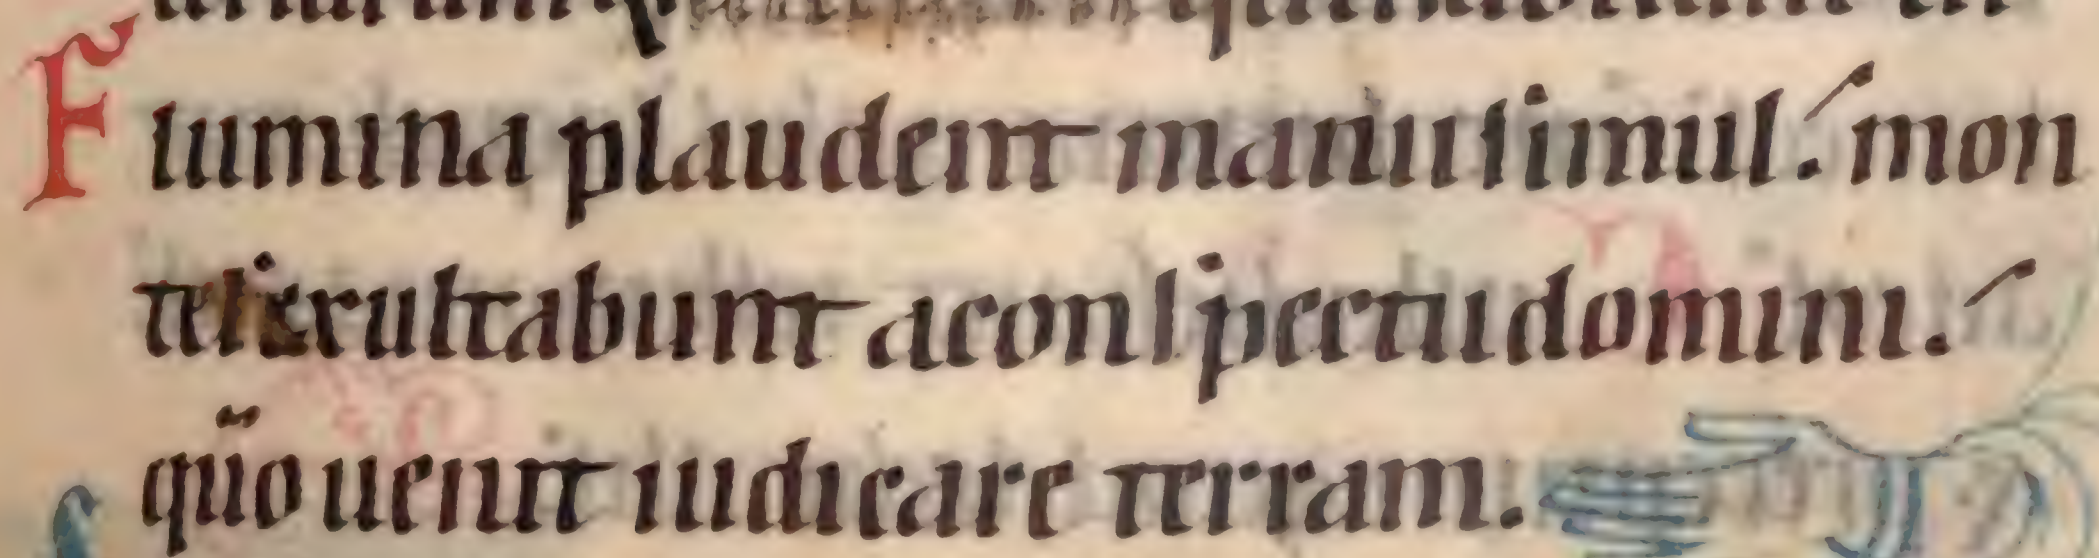 Flumina plaudent manu ſimul. mon
teſ exultabunt a conſpectu domini.
qūo uenit iudicare terram.